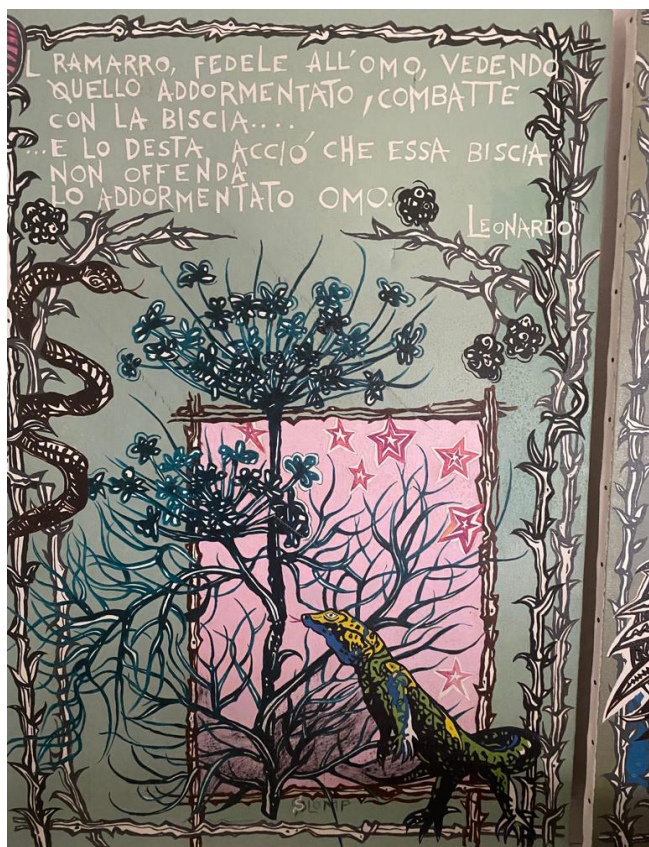 L RAMARRO, FEDELE ALL'OMO, VEDENDO
QUELLO ADDORMENTATO, COMBATTE
CON LA BISCIA....
...E LO DESTA ACCIÓ CHE ESSA BISCIA
NON OFFENDA
LO ADDORMENTATO OMO.
LEONARDO
SLOMP